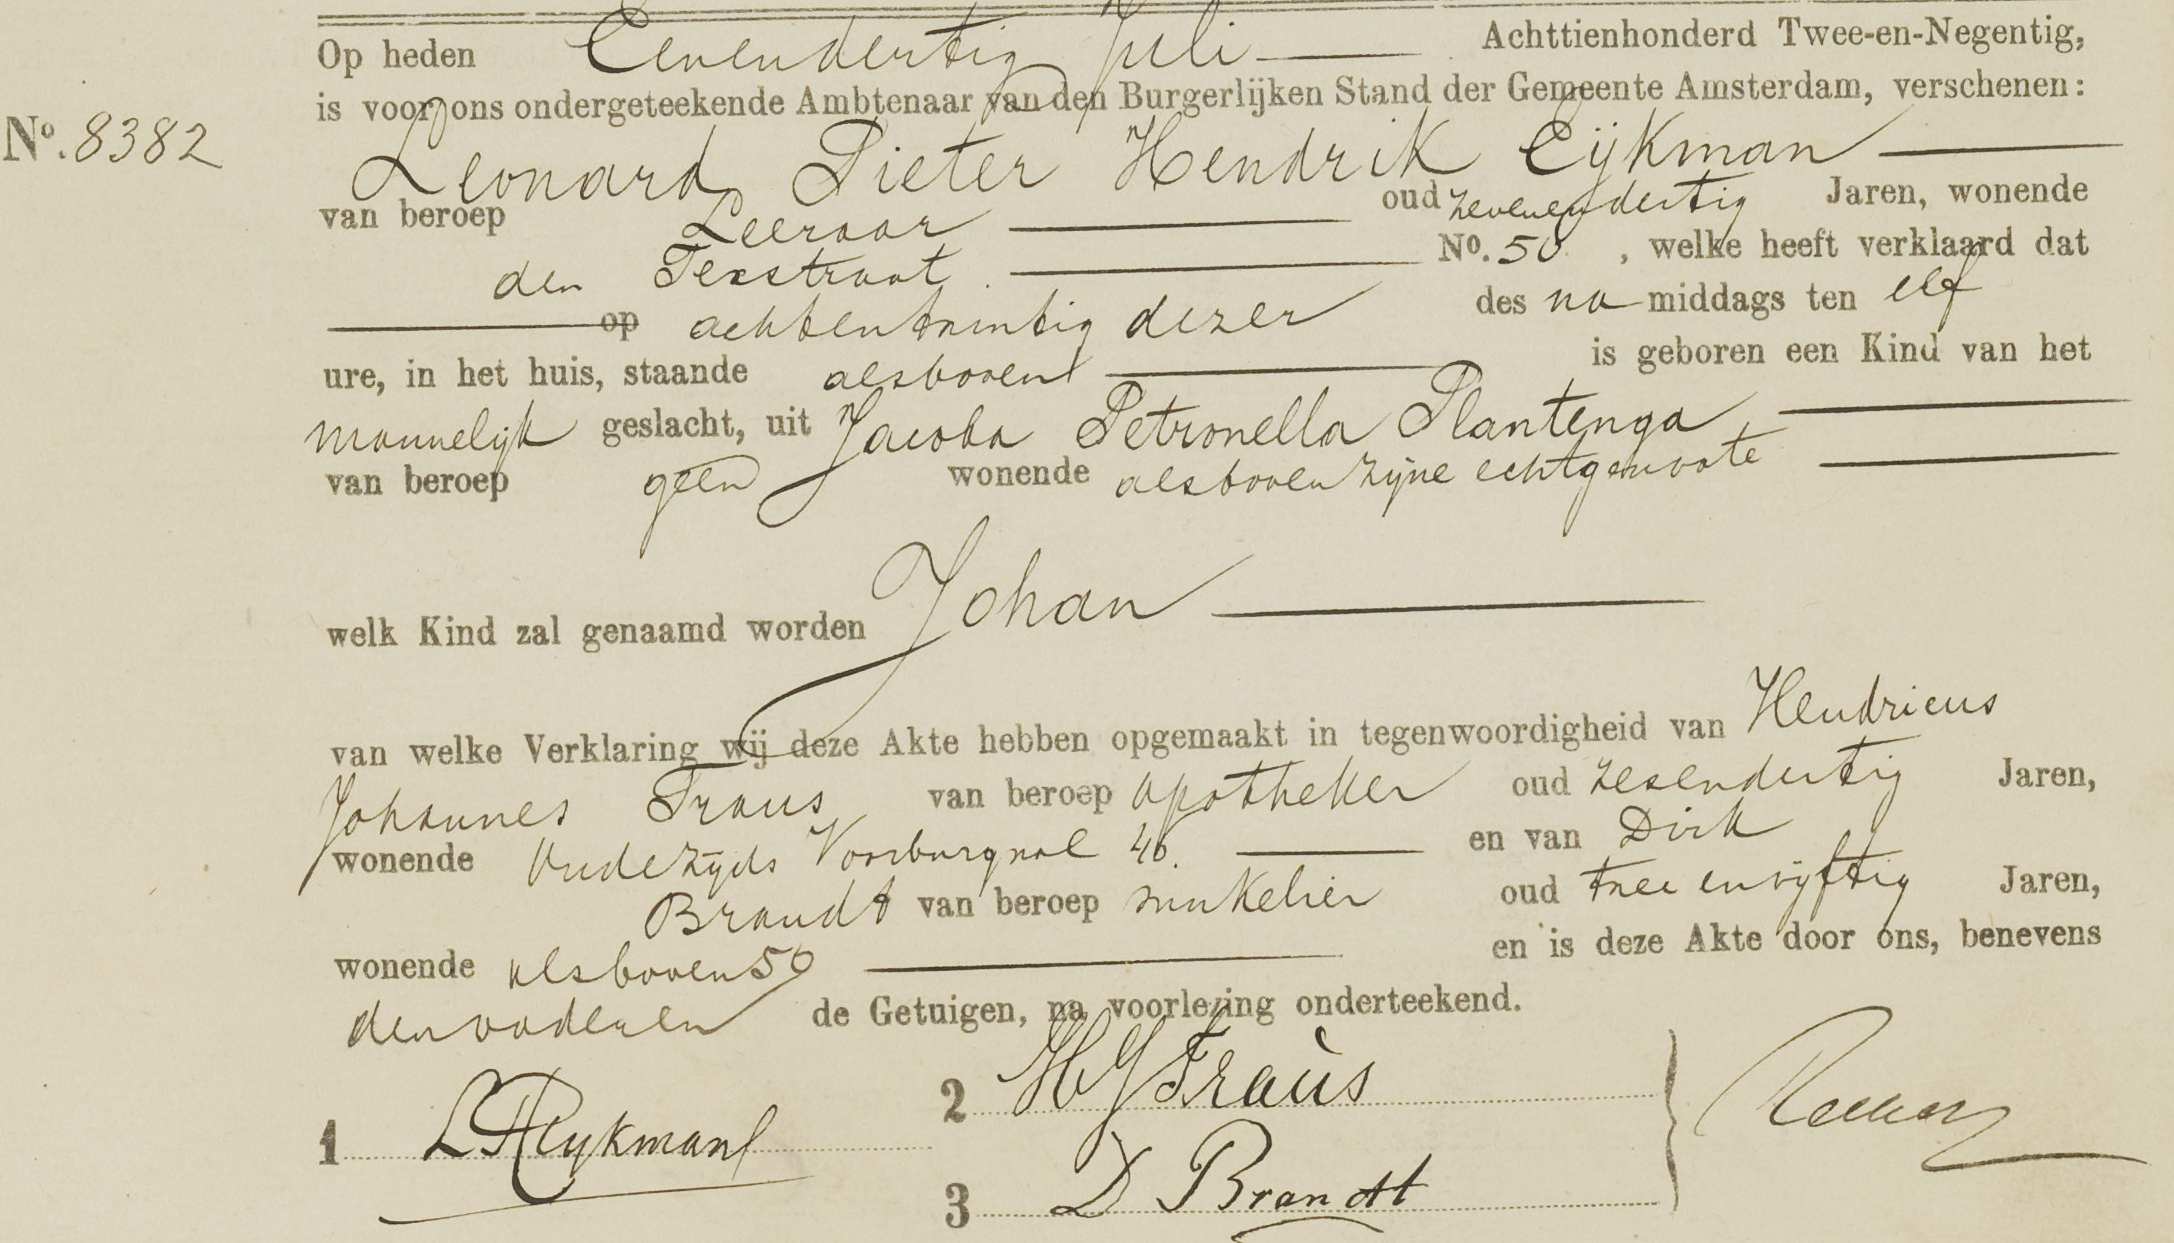 Op heden Eenendertig Juli Achttienhonderd Twee-en-Negentig,
is voor ons ondergeteekende Ambtenaar van den Burgerlijken Stand der Gemeente Amsterdam, verschenen:
No. 8382
Leonard Pieter Hendrik Eijkman
van beroep Leeraar oud zevenendertig Jaren, wonende
den Texstraat No. 50 , welke heeft verklaard dat
op achtentwintig dezer des na middags ten elf
ure, in het huis, staande alsboven is geboren een Kind van het
mannelijk geslacht, uit Jacoba Petronella Plantenga
van beroep geen wonende alsboven zijne echtgenoote
welk Kind zal genaamd worden Johan
van welke Verklaring wij deze Akte hebben opgemaakt in tegenwoordigheid van Hendricus
Johannes Fraus van beroep apotheker oud zesendertig Jaren,
wonende Oudezijds Voorburgwal 46. en van Dirk
Brandt van beroep winkelier oud twee envijftig Jaren,
wonende alsboven 50 en is deze Akte door ons, benevens
den vader en de Getuigen, na voorlezing onderteekend.
1 LPHEykman
2 HJFraus
3 D Brandt